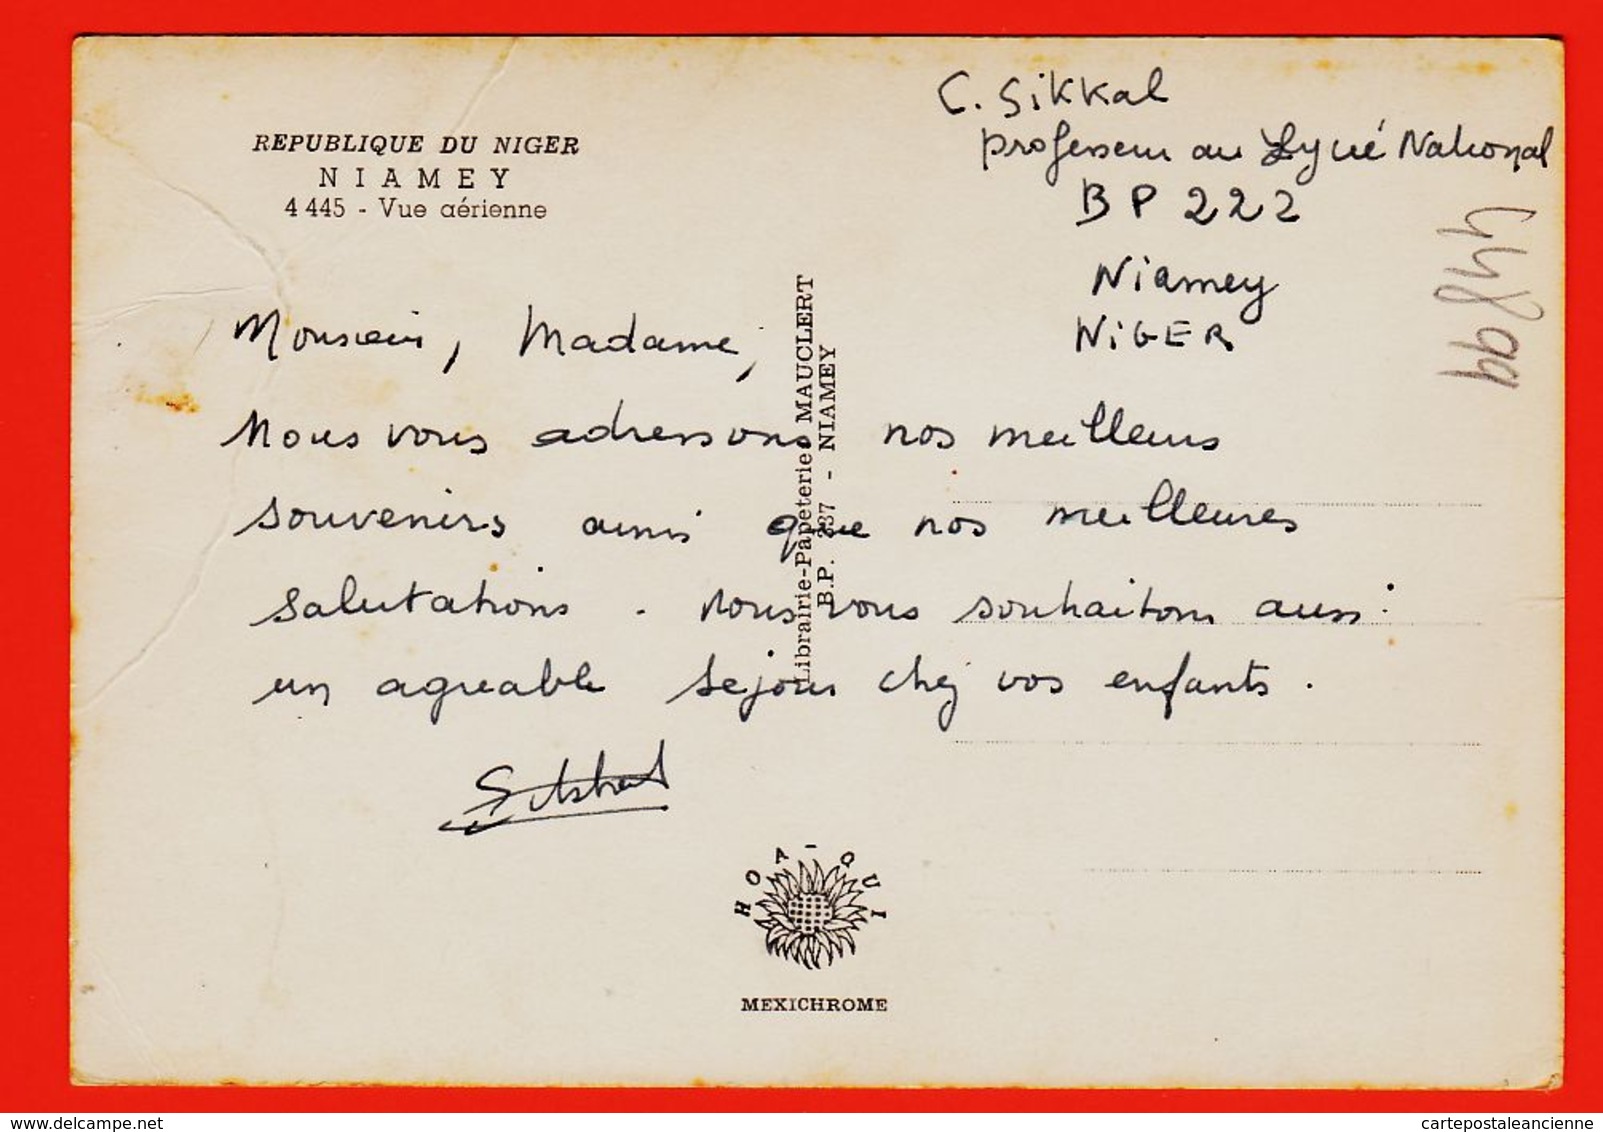 REPUBLIQUE DU NIGER
NIAMEY
4 445 - Vue aérienne
C. Sikkal
professeur au Lycée National
BP 222
Niamey
NIGER
44899
Monsieur, Madame,
Nous vous adressons nos meilleurs
souvenirs ainsi que nos meilleures
salutations. nous vous souhaitons aussi
un agreable sejour chez vos enfants.
Librairie-Papeterie MAUCLERT
B.P. 237 - NIAMEY
HOA-QUI
MEXICHROME
delcampe.net
cartepostaleancienne